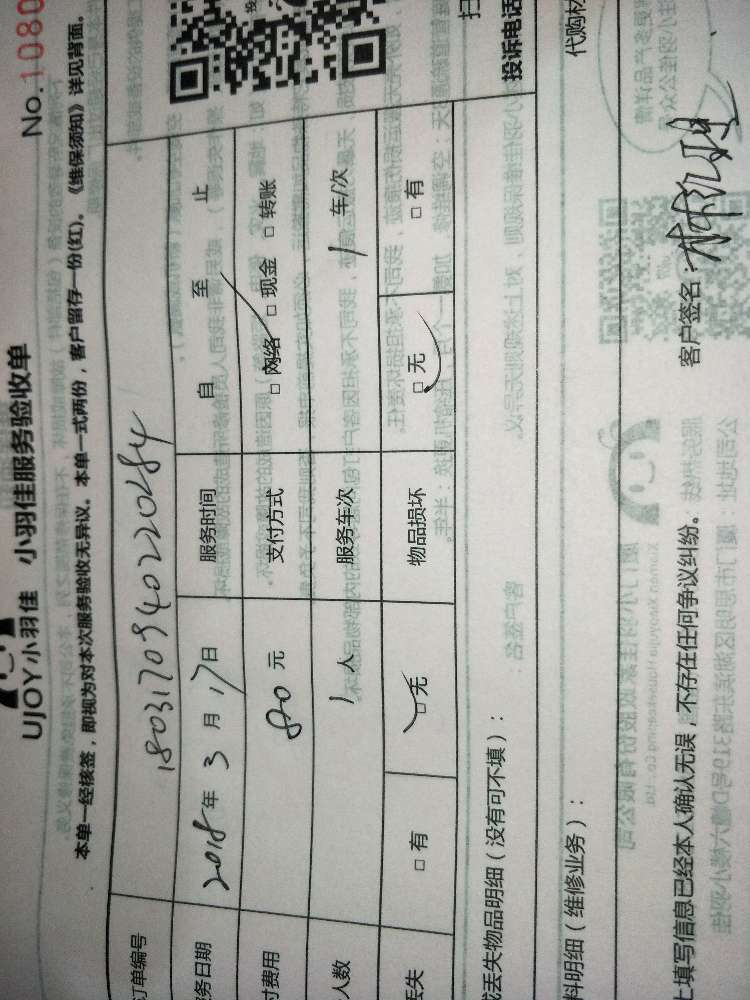 UJOY小羽佳 小羽佳服务验收单 No.1080
本单一经核签，即视为对本次服务验收无异议。本单一式两份，客户留存一份(红)。《维保须知》详见背面。
订单编号 1803170940220484
务日期 2018年3月17日 服务时间 自 至 止
付费用 820元 支付方式 □网络 □现金 □转账
人数 1人 服务车次 1车/次
丢失 □有 □无 物品损坏 □无 □有
或丢失物品明细（没有可不填）： 扫
投诉电话
料明细（维修业务）： 代购材
上填写信息已经本人确认无误，不存在任何争议纠纷。 客户签名：